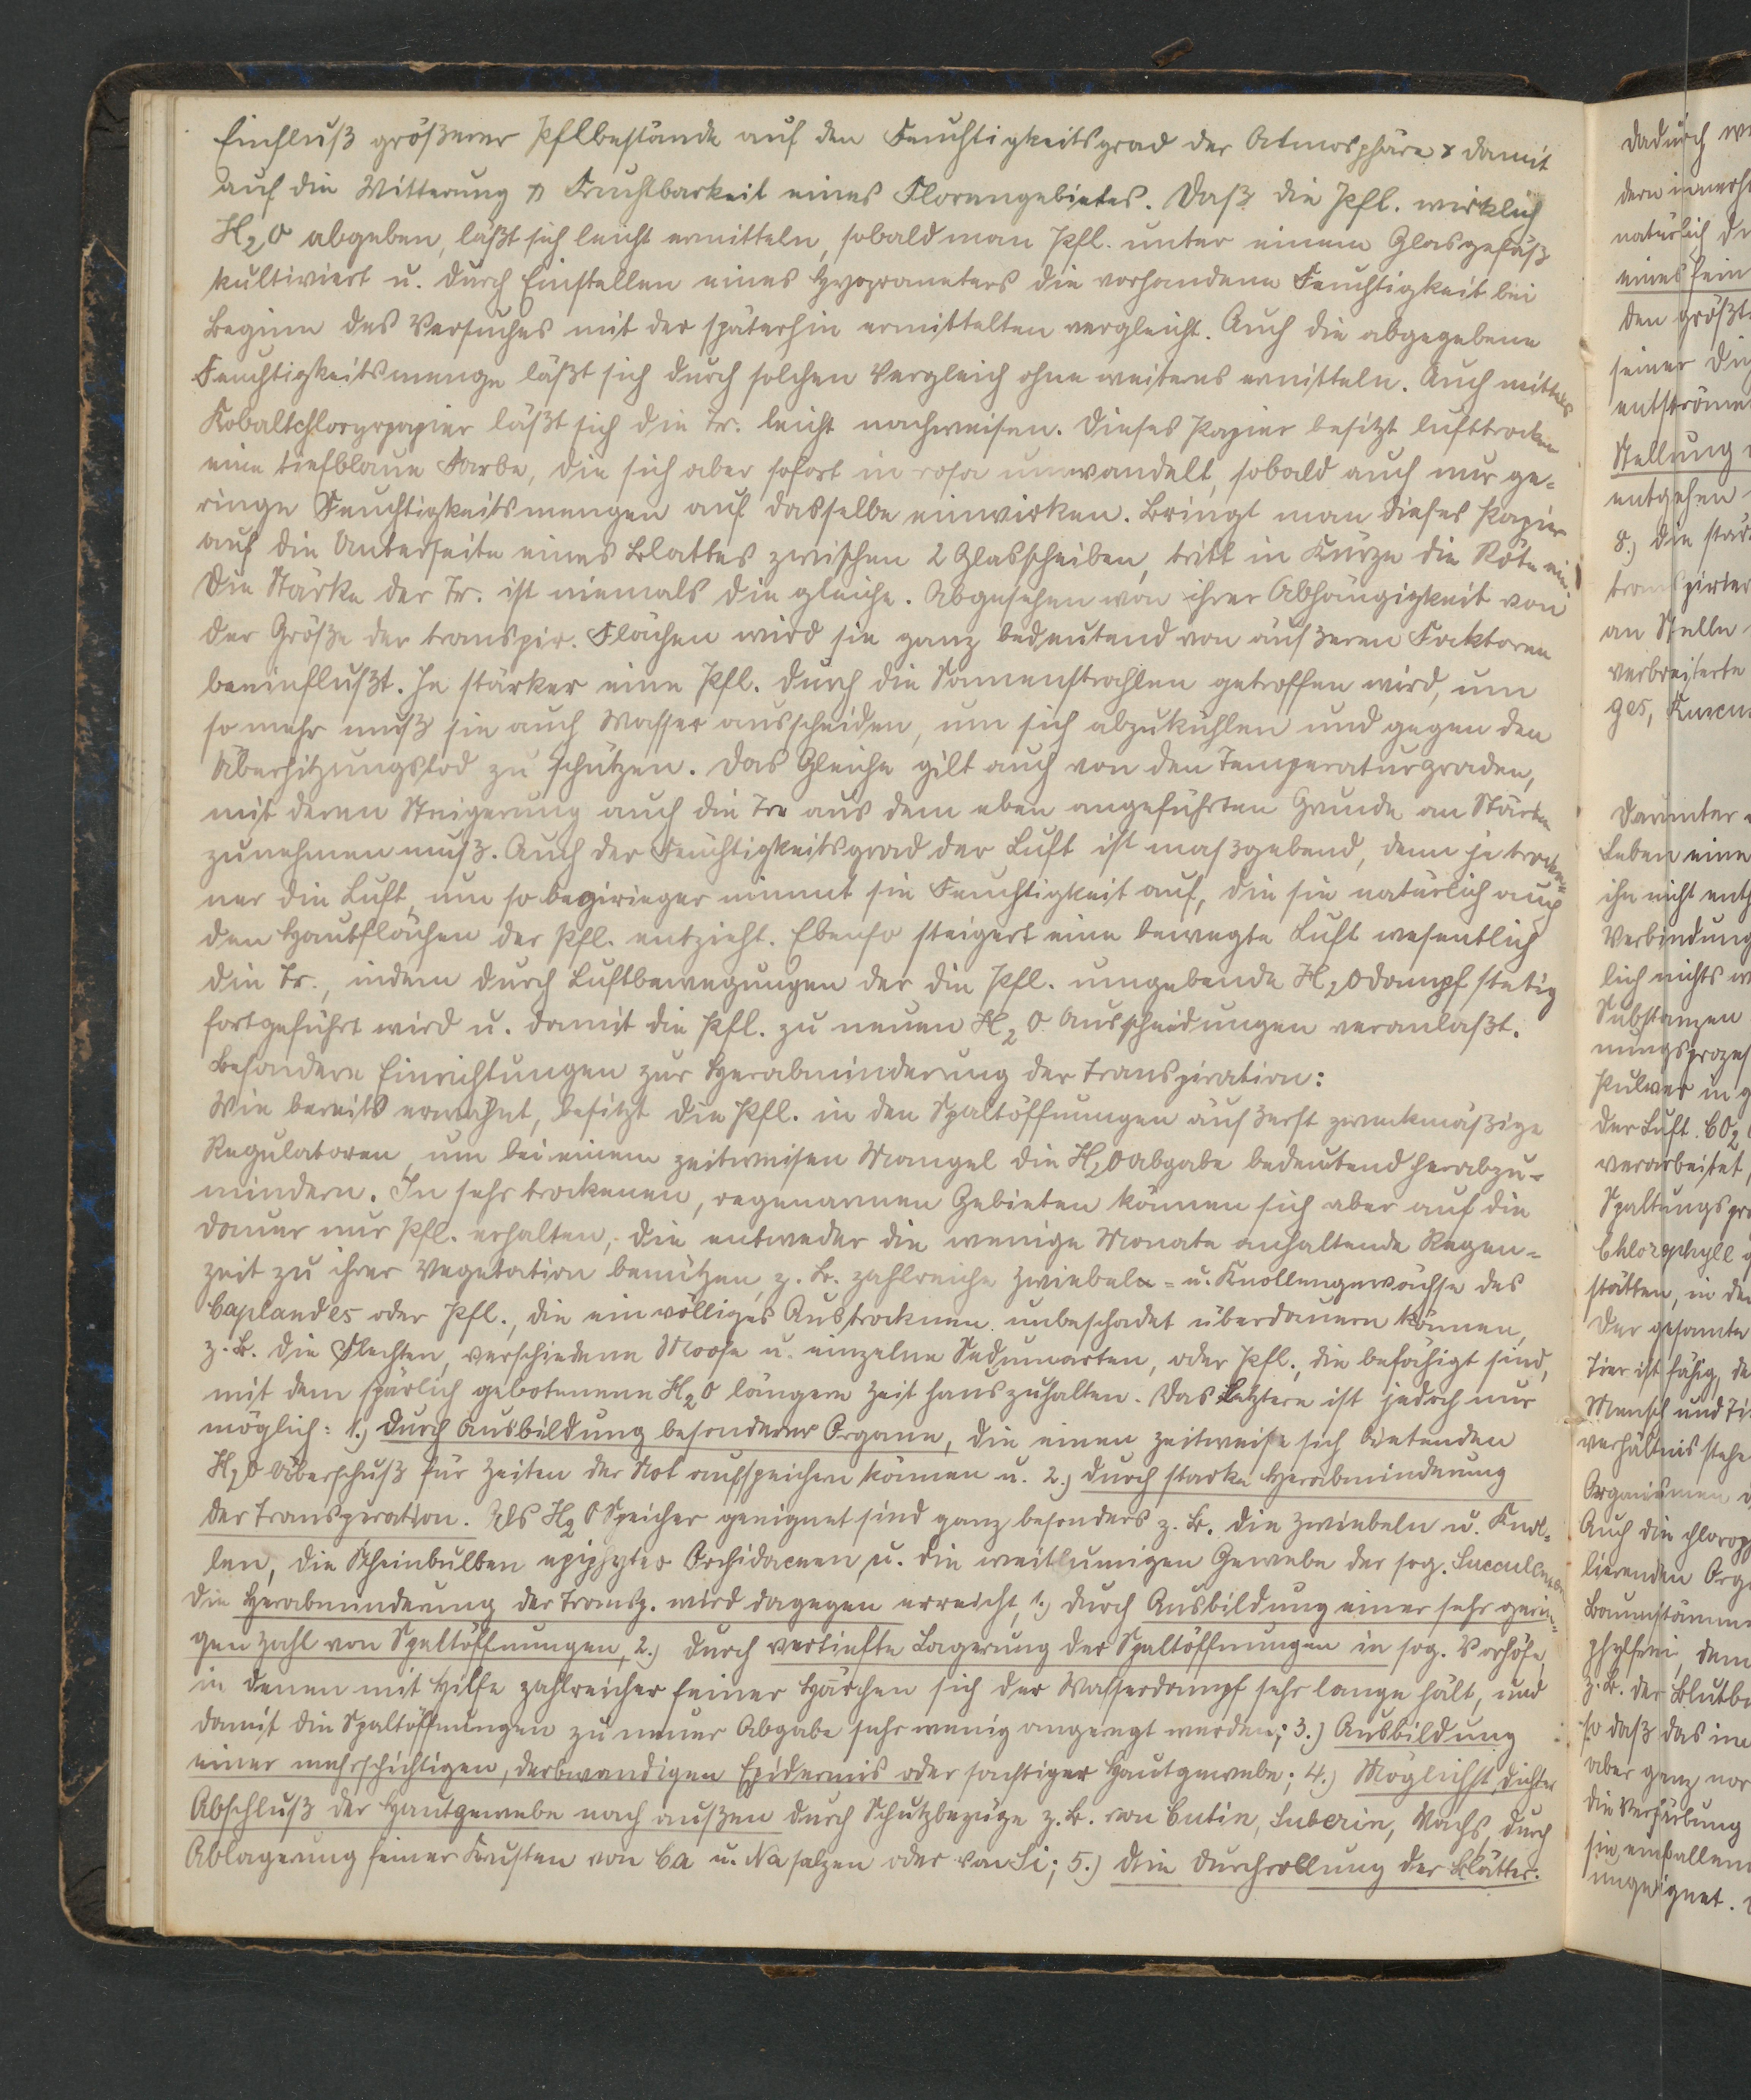 Einfluß größerer Pflbestände auf den Feuchtigkeitsgrad der Atmosphäre & damit
auf die Witterung & Fruchtbarkeit eines Florengebietes. Daß die Pfl. wirklich
H₂O abgeben, läßt sich leicht ermitteln, sobald man Pfl. unter einem Glasgefäß
kultiviert u. durch Einstellen eines Hygrometers die vorhandene Feuchtigkeit bei
Beginn des Versuches mit der späterhin ermittelten vergleicht. Auch die abgegebene
Feuchtigkeitsmenge läßt sich durch solchen Vergleich ohne weiteres ermitteln. Auch mittels
Kobaltchlorürpapier läßt sich die Tr. leicht nachweisen. Dieses Papier besitzt lufttrocken
eine tiefblaue Farbe, die sich aber sofort in rosa umwandelt, sobald auch nur ge-
ringe Feuchtigkeitsmengen auf dasselbe einwirken. Bringt man dieses Papier
auf die Unterseite eines Blattes zwischen 2 Glasscheiben, tritt in Kürze die Röte ein.
Die Stärke der Tr. ist niemals die gleiche. Abgesehen von ihrer Abhängigkeit von
der Größe der transpir. Flächen wird sie ganz bedeutend von äußeren Faktoren
beeinflußt. Je stärker eine Pfl. durch die Sonnenstrahlen getroffen wird, um
so mehr muß sie auch Wasser ausscheiden, um sich abzukühlen und gegen den
Überhitzungstod zu schützen. Das Gleiche gilt auch von den Temperaturgraden,
mit deren Steigerung auch die Tr. aus dem eben angeführten Grunde an Stärke
zunehmen muß. Auch der Feuchtigkeitsgrad der Luft ist maßgebend, denn je trocke-
ner die Luft, um so begieriger nimmt sie Feuchtigkeit auf, die sie natürlich auch
den Hautflächen der Pfl. entzieht. Ebenso steigert eine bewegte Luft wesentlich
die Tr., indem durch Luftbewegungen der die Pfl. umgebende H₂Odampf stetig
fortgeführt wird u. damit die Pfl. zu neuen H₂O Ausscheidungen veranlaßt.
Besondere Einrichtungen zur Herabminderung der Transpiration:
Wie bereits erwähnt, besitzt die Pfl. in den Spaltöffnungen äußerst zweckmäßige
Regulatoren, um bei einem zeitweisen Mangel die H₂Oabgabe bedeutend herabzu-
mindern. In sehr trockenen, regenarmen Gebieten können sich aber auf die
Dauer nur Pfl. erhalten, die entweder die wenige Monate anhaltende Regen-
zeit zu ihrer Vegetation benützen, z. B. zahlreiche Zwiebeln- u. Knollengewächse des
Caplandes oder Pfl., die ein völliges Austrocknen unbeschadet überdauern können,
z. B. die Flechten, verschiedene Moose u. einzelne Sedumarten, oder Pfl., die befähigt sind,
mit dem spärlich gebotenen H₂O längere Zeit hauszuhalten. Das Letztere ist jedoch nur
möglich: 1.) durch Ausbildung besonderer Organe, die einen zeitweise sich bietenden
H₂O Überschuß für Zeiten der Not aufspeichern können u. 2.) durch starke Herabminderung
der Transpiration. Als H₂O Speicher geeignet sind ganz besonders z. B. die Zwiebeln u. Knol-
len, die Scheinbulben epiphyter Orchidaceen u. die weitlumigen Gewebe der sog. Succulenten
Die Herabminderung der Transp. wird dagegen erreicht, 1.) durch Ausbildung einer sehr gerin-
gen Zahl von Spaltöffnungen, 2.) durch vertiefte Lagerung der Spaltöffnungen in sog. Vorhöfe,
in denen mit Hilfe zahlreicher feiner Härchen sich der Wasserdampf sehr lange hält, und
damit die Spaltöffnungen zu neuer Abgabe sehr wenig angeregt werden; 3.) Ausbildung
einer mehrschichtigen, derbwandigen Epidermis oder sonstiger Hautgewebe; 4.) Möglichst dichter
Abschluß der Hautgewebe nach außen durch Schutzbezüge z. B. von Cutin, Suberin, Wachs, durch
Ablagerung feiner Krusten von Ca u. Na salzen oder von Si; 5.) die Durchrollung der Blätter.
dadurch
natürlich
eines fein
den größt
seiner
entströme
Stellung
entgehen
8.) die stär
transpirier
an Stelle
verbreiterte
ges,
Darunter
Leben eine
ihn nicht enth
Verbindung
lich nichts
Substanzen
nungsprozes
Pulver in
der Luft. CO₂
verarbeitet,
Spaltungspro
Chlorophyll
stätten, in de
Der gesamte
Tier ist fähig,
Mensch und Ti
verhältnis stehe
Organismen
Auch die chlorop
lierenden Org
Baumstämme
phyllfrei, dem
z. B. der Blutbu
so daß das
aber ganz nor
die Verfärbung
einfallen
ungeeignet.